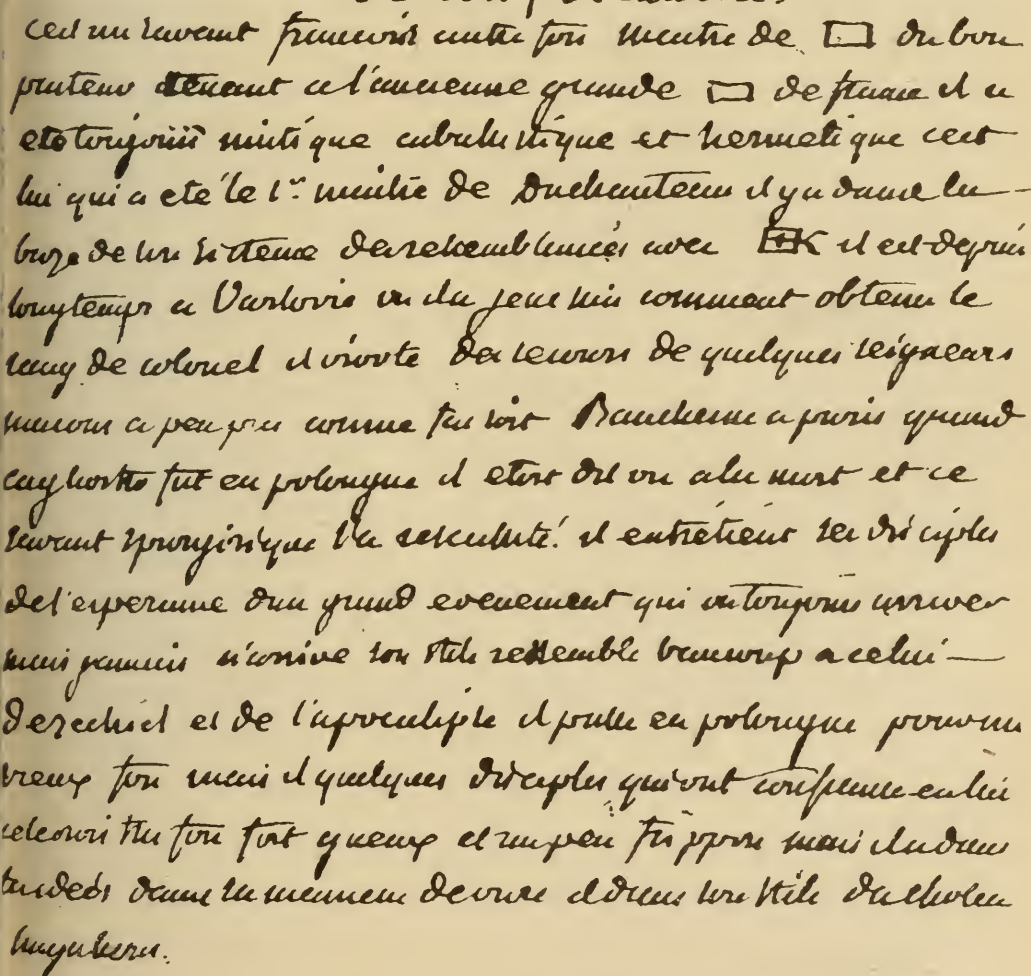 cest un savant francois autre fou maitre de ▭ du bon
pasteur tenant a l'ancienne grande ▭ de france il a
eté toujours mitique cabalistique et hermetique cest
lui qui a eté le 1er maitre de Duchanteau il y a dans la
baze de son sisteme des resemblances avec il est depuis
longtemps a Varsovie ou il a je ne sais comment obtenu le
rang de colonel il vivote des secours de quelques seigneurs
macons a peu pres comme faisoit a paris quand
cagliostro fut en pologne il etoit dit on a la mort et ce
savant spargirique l'a resculuté il entretient ses disciples
de l'esperance d'un grand evenement qui va toujours arriver
mais jamais n'arrive son stile resemble beaucoup a celui
d'ezechiel et de l'apocalipse il passe en pologne pour un
vieux fou mais il quelques disciples qui ont confiance en lui
je le crois fou fort gueux et un peu frippon mais il a dans
ses idées dans sa maniere de vivre et dans son stile du